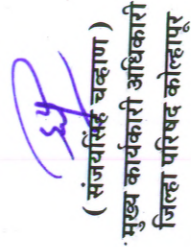 ( संजयसिंह चव्हाण )
मुख्य कार्यकारी अधिकारी
जिल्हा परिषद कोल्हापूर